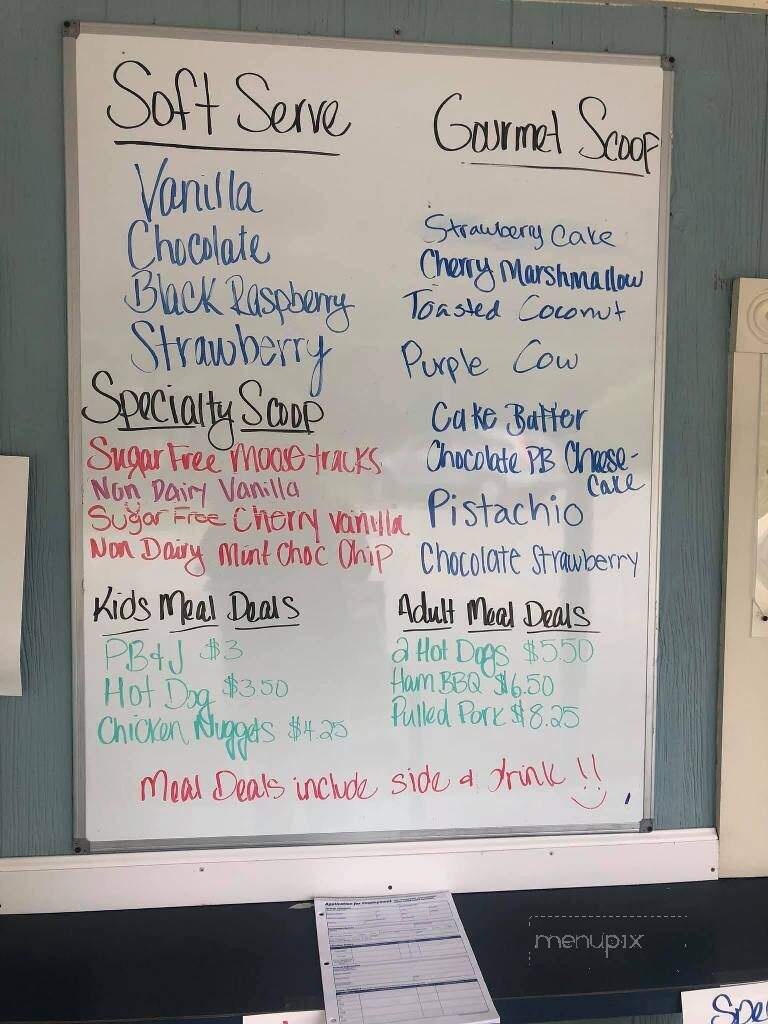 Soft Serve
Vanilla
Chocolate
Black Raspberry
Strawberry
Specialty Scoop
Sugar Free Moose tracks
Non Dairy Vanilla
Sugar Free Cherry Vanilla
Non Dairy Mint Choc Chip
Gourmet Scoop
Strawberry Cake
Cherry Marshmallow
Toasted Coconut
Purple Cow
Cake Batter
Chocolate PB Cheese-
Cake
Pistachio
Chocolate Strawberry
Kids Meal Deals
PB&J $3
Hot Dog $3.50
Chicken Nuggets $4.25
Adult Meal Deals
2 Hot Dogs $5.50
Ham BBQ $6.50
Pulled Pork $8.25
Meal Deals include side & drink !!
Application for Employment
menupix
Spe